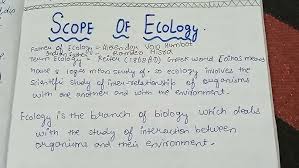 SCOPE OF ECOLOGY
Father of Ecology - Alexander Von Humbot
Indian Father - Ramdeo Misra
Term Ecology - Reiter (1868AD) Greek word [oikos means
house & logos mean study of. so ecology involves the
scientific study of inter-relationship of organisms
with one another and with the environment.
Ecology is the branch of biology which deals
with the study of interaction between
organisms and their environment.